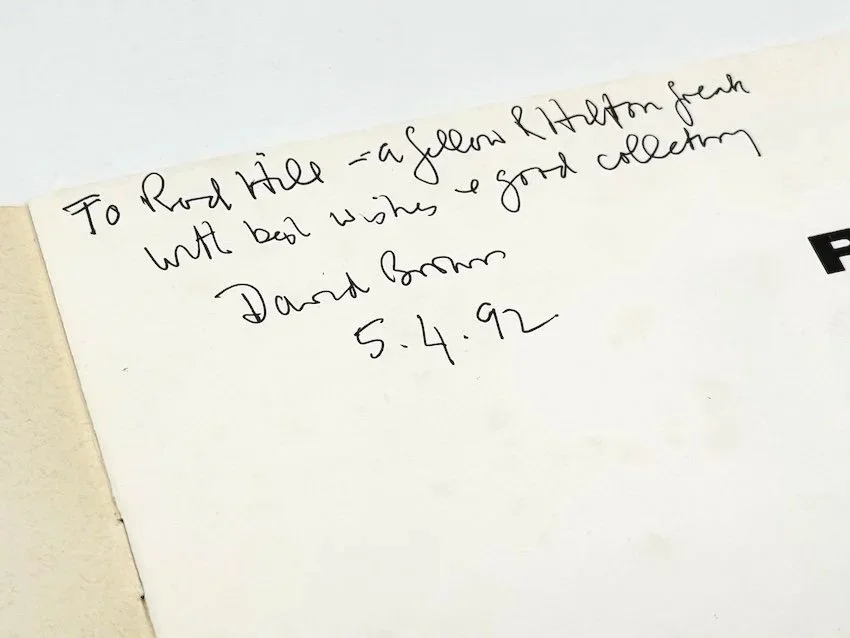 To Rod Hill – a fellow R Hilton freak
with best wishes & good collecting
David Brown
5.4.92